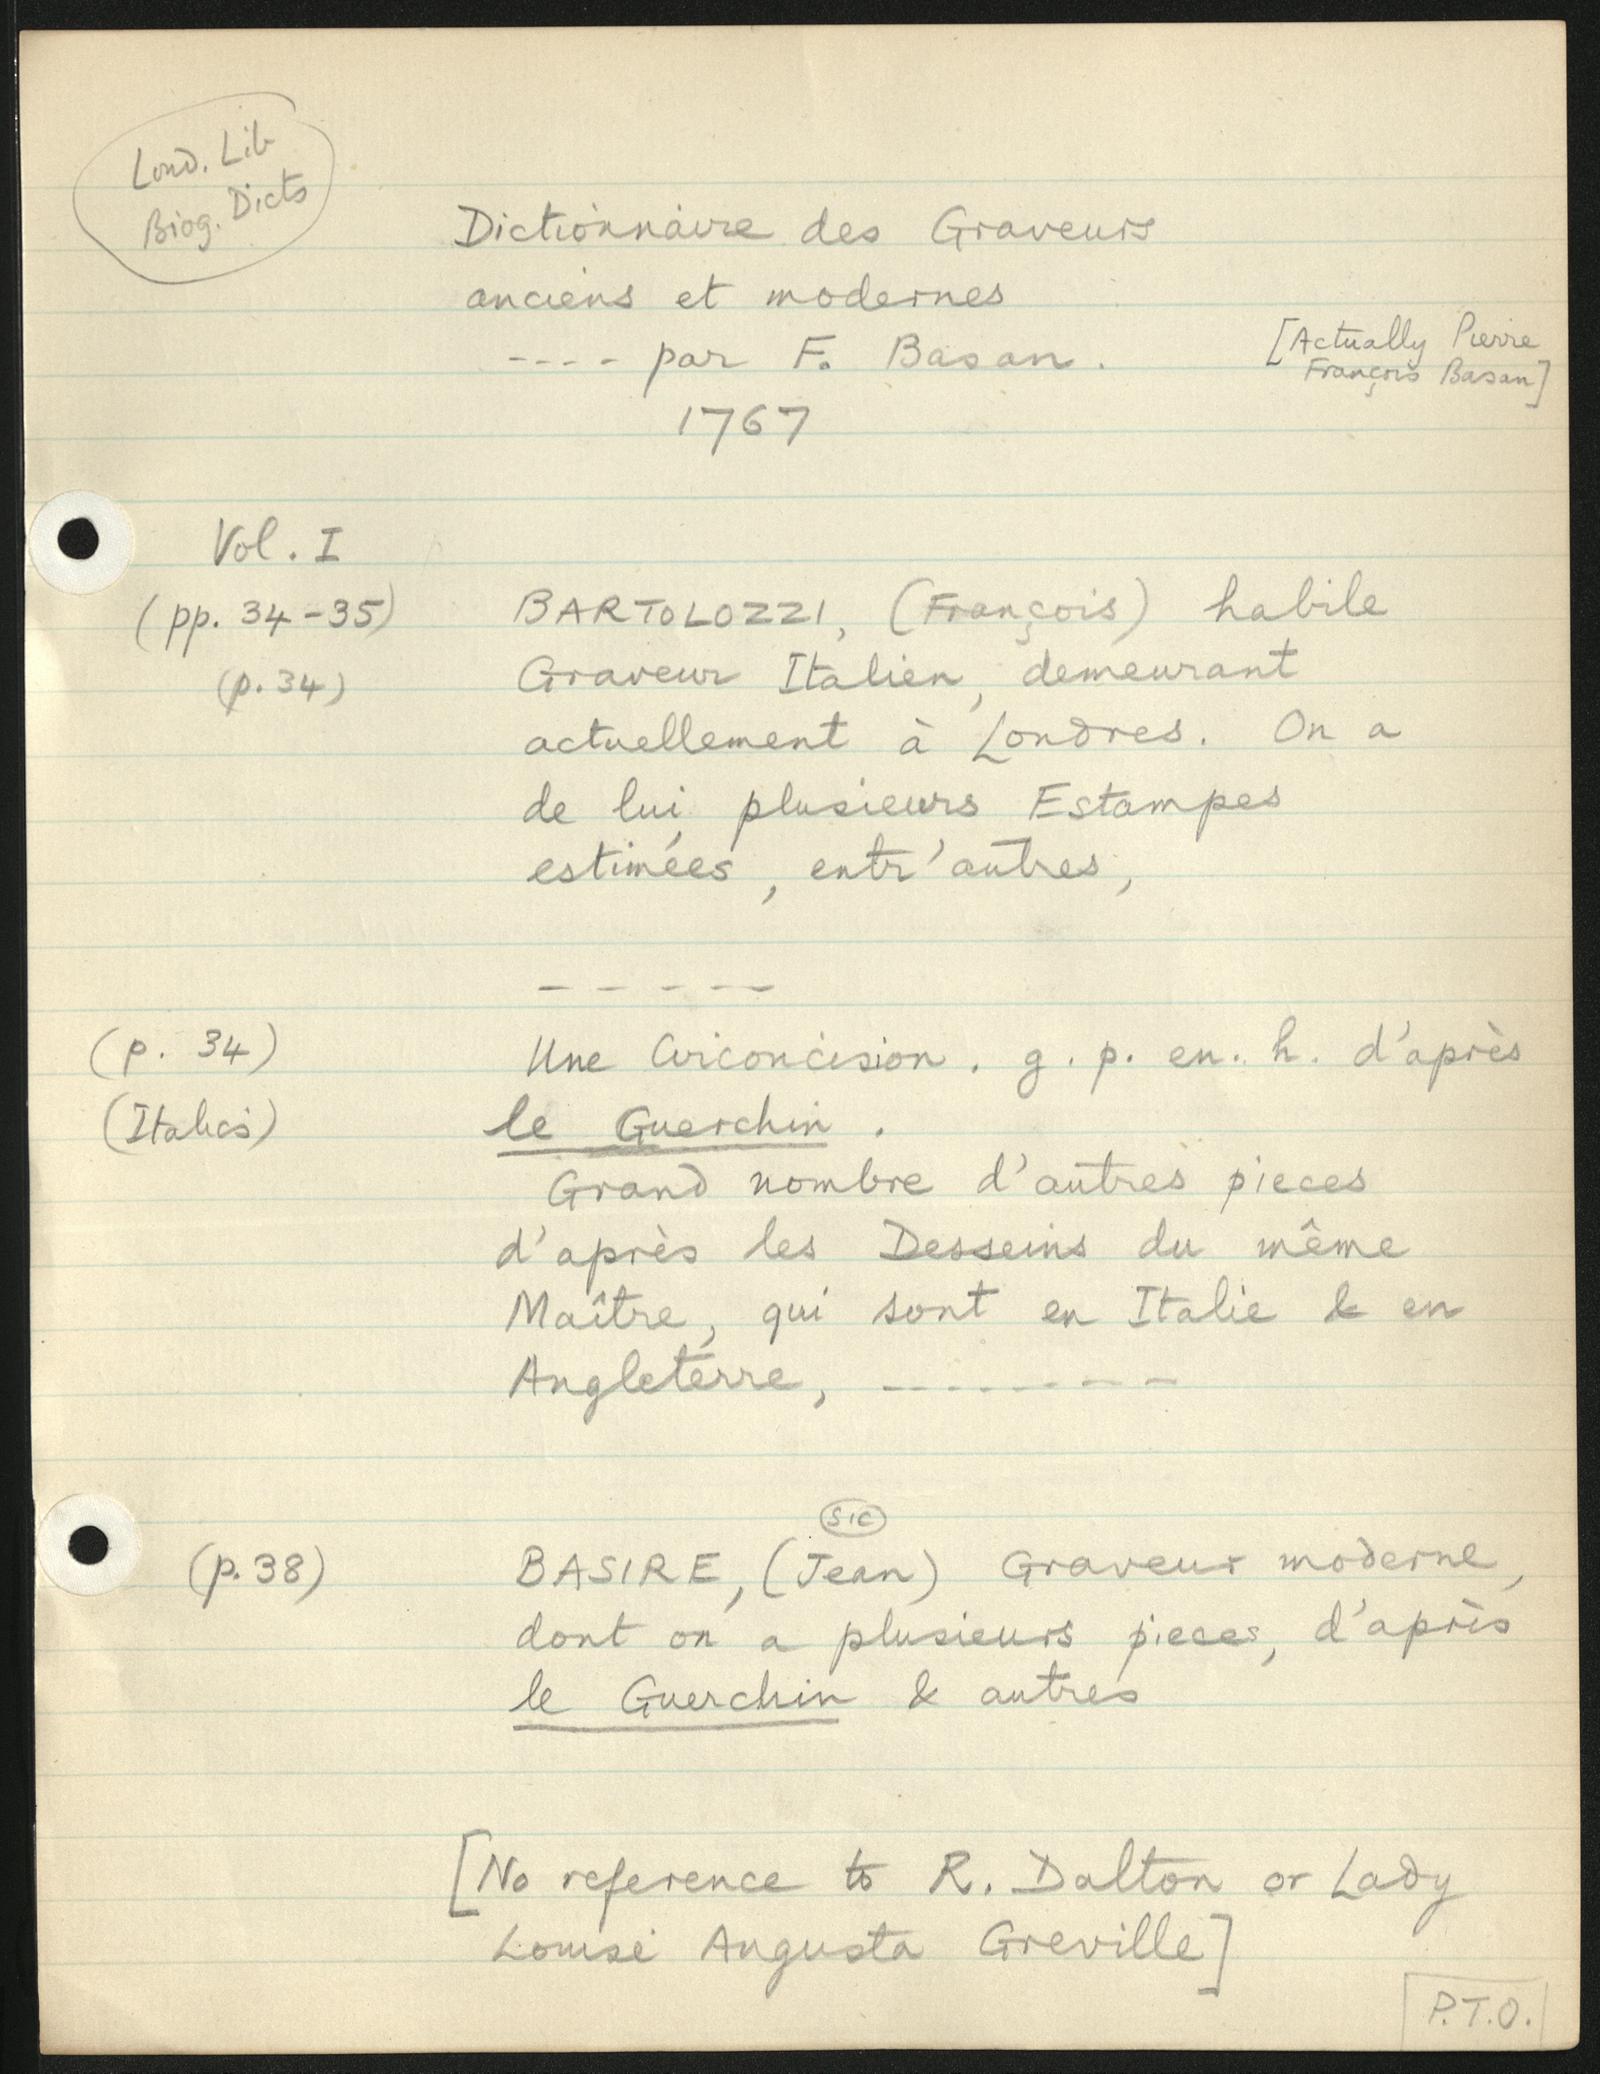 Lond. Lib
Biog. Dicts
Dictionnaire des Graveurs
anciens et modernes
---- par F. Basan.
[Actually Pierre
François Basan]
1767
Vol. I
(pp. 34-35)
BARTOLOZZI, (François) habile
(p. 34)
Graveur Italien, demeurant
actuellement à Londres. On a
de lui plusieurs Estampes
estimées, entr'autres,
-----
(p. 34)
Une Circoncision. g. p. en. h. d'après
(Italics)
le Guerchin.
Grand nombre d'autres pieces
d'après les Desseins du même
Maître, qui sont en Italie & en
Angleterre, --------
sic
(p. 38)
BASIRE, (Jean) Graveur moderne,
dont on a plusieurs pieces, d'après
le Guerchin & autres
[No reference to R. Dalton or Lady
Louise Augusta Greville]
P.T.O.